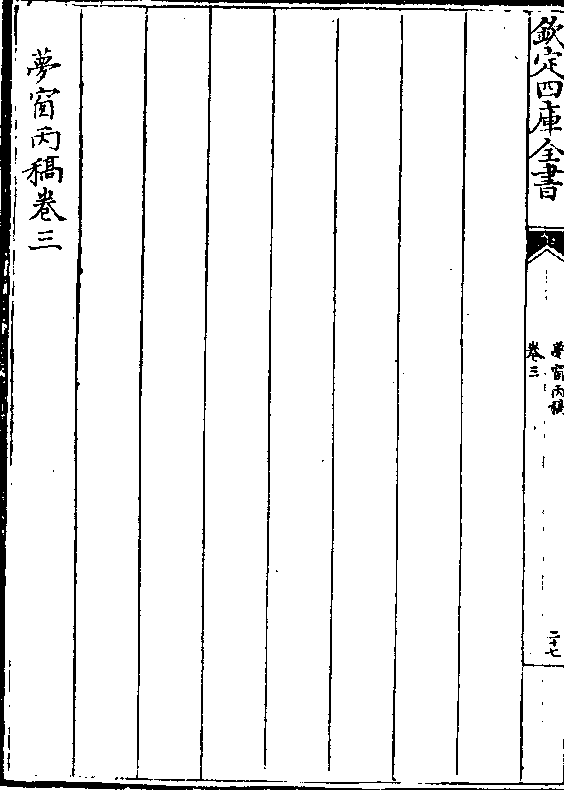 欽定四庫全書
夢窗丙稿
卷三
二十七
夢窗丙稿卷三